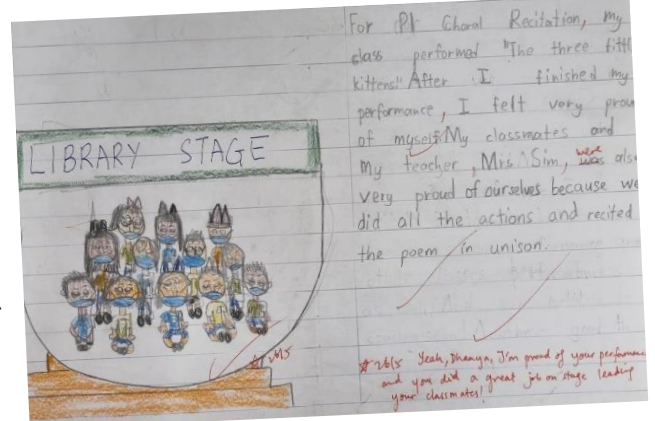 LIBRARY STAGE
26/5
For P1 Choral Recitation, my
class performed "The three litt
kittens!" After I finished my
performance, I felt very prou
of myself. My classmates and
my teacher, Mrs. Sim, were was also
very proud of ourselves because we
did all the actions and recited
the poem in unison.
26/5 Yeah, Dhanya, I'm proud of your performance
and you did a great job on stage leading
your classmates!